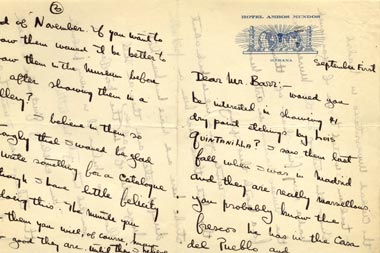 HOTEL AMBOS MUNDOS
HABANA
September First
Dear Mr. Barr:—
would you
be interested in showing 41
dry point etchings by Luis
QUINTANILLA? I saw them last
fall when I was in Madrid
and they are really marvellous.
you probably know the
frescos he has in the Casa
del Pueblo and
(2)
of November. If you want to
them would it be better to
show them in the museum before
after showing them in a
gallery?
I believe in them so
strongly that I would be glad
write something for a catalogue
though I have little felicity
doing this. The minute you
them you will, of course, know
good they are. until then I believe